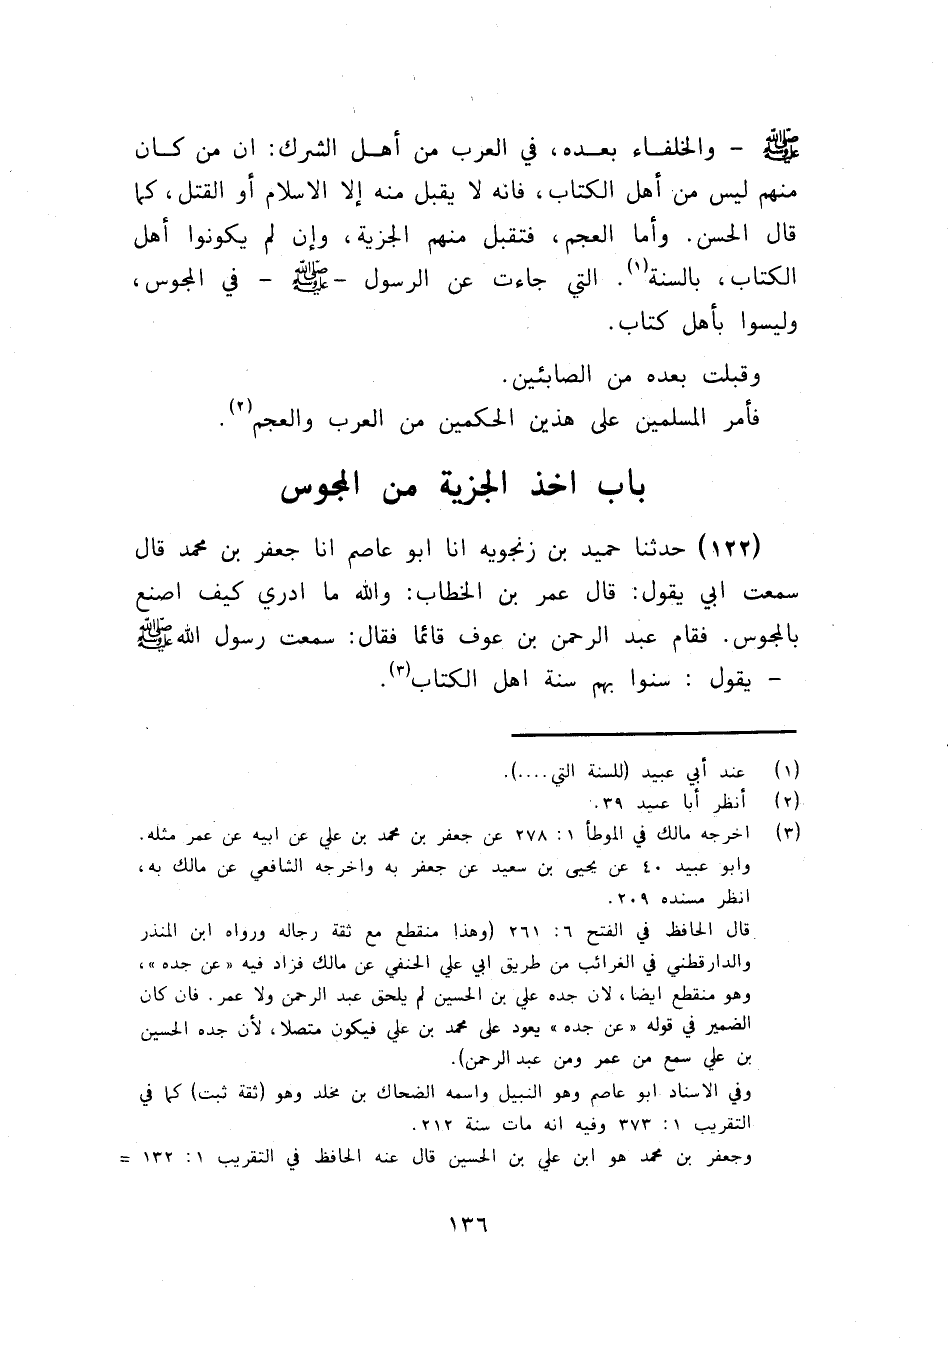 ﷺ - والخلفاء بعده، في العرب من أهل الشرك: ان من كان
منهم ليس من أهل الكتاب، فانه لا يقبل منه إلا الاسلام أو القتل، كما
قال الحسن. وأما العجم، فتقبل منهم الجزية، وإن لم يكونوا أهل
الكتاب، بالسنة(١). التي جاءت عن الرسول -ﷺ - في المجوس،
وليسوا بأهل كتاب.
وقبلت بعده من الصابئين.
فأمر المسلمين على هذين الحكمين من العرب والعجم(٢).
باب اخذ الجزية من المجوس
(١٢٢) حدثنا حميد بن زنجويه انا ابو عاصم انا جعفر بن محمد قال
سمعت ابي يقول: قال عمر بن الخطاب: والله ما ادري كيف اصنع
بالمجوس. فقام عبد الرحمن بن عوف قائما فقال: سمعت رسول الله ﷺ
- يقول : سنوا بهم سنة اهل الكتاب(٣).
(١) عند أبي عبيد (للسنة التي....).
(٢) أنظر أبا عبيد ٣٩.
(٣) اخرجه مالك في الموطأ ١: ٢٧٨ عن جعفر بن محمد بن علي عن ابيه عن عمر مثله.
وابو عبيد ٤٠ عن يحيى بن سعيد عن جعفر به واخرجه الشافعي عن مالك به،
انظر مسنده ٢٠٩.
قال الحافظ في الفتح ٦: ٢٦١ (وهذا منقطع مع ثقة رجاله ورواه ابن المنذر
والدارقطني في الغرائب من طريق ابي علي الحنفي عن مالك فزاد فيه «عن جده»،
وهو منقطع ايضا، لان جده علي بن الحسين لم يلحق عبد الرحمن ولا عمر. فان كان
الضمير في قوله «عن جده» يعود على محمد بن علي فيكون متصلا، لأن جده الحسين
بن علي سمع من عمر ومن عبد الرحمن).
وفي الاسناد ابو عاصم وهو النبيل واسمه الضحاك بن مخلد وهو (ثقة ثبت) كما في
التقريب ١: ٣٧٣ وفيه انه مات سنة ٢١٢.
وجعفر بن محمد هو ابن علي بن الحسين قال عنه الحافظ في التقريب ١: ١٣٢ =
١٣٦